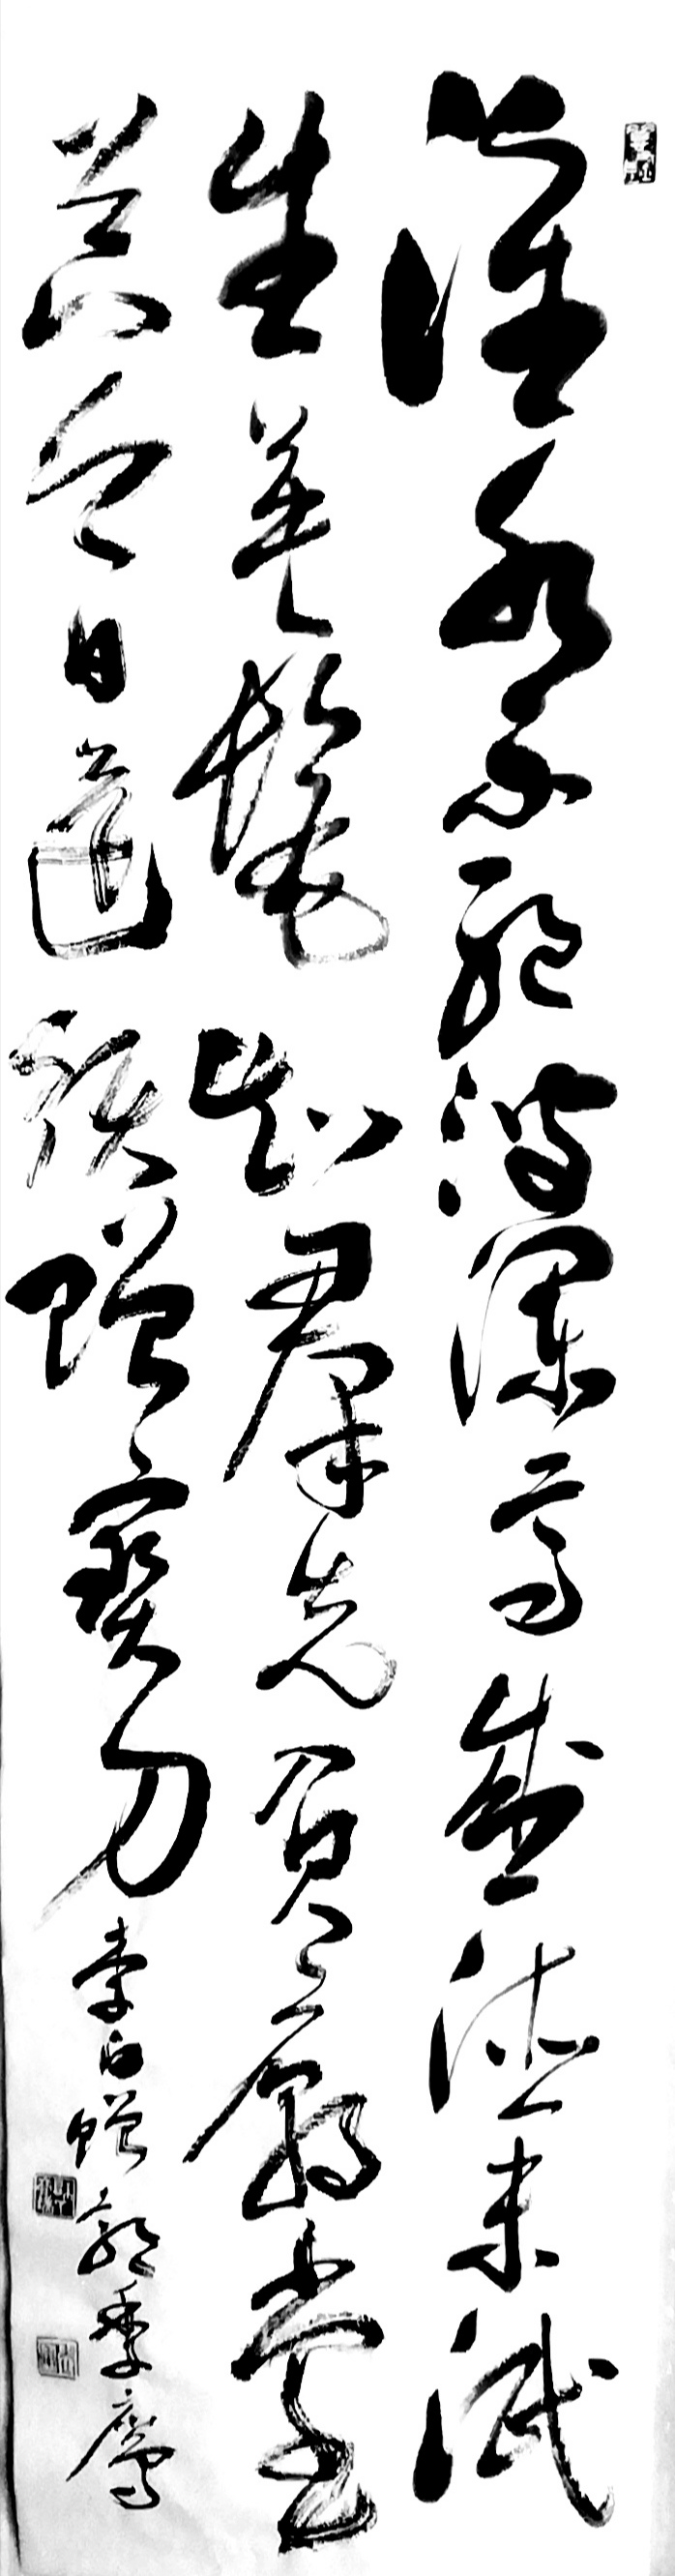 淮水不絕濤瀾高盛德未泯
生英髦知君先負廟堂
器今日還須贈寶刀
李白贈郭季鷹